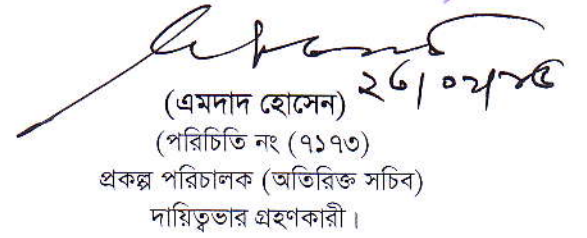 (এমদাদ হোসেন)
(পরিচিতি নং (৭১৭৩)
প্রকল্প পরিচালক (অতিরিক্ত সচিব)
দায়িত্বভার গ্রহণকারী।